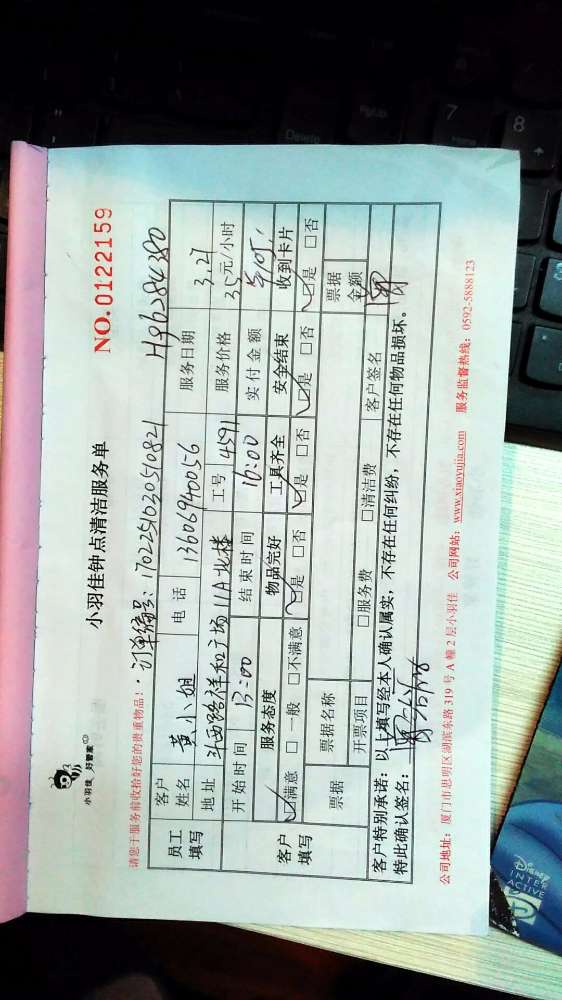 小羽佳 好管家
小羽佳钟点清洁服务单
NO.0122159
请您于服务前收拾好您的贵重物品！
订单编号：1702251030510821
H9b284380
员工填写 客户姓名 黄小姐 电话 13606940056 服务日期 3.21
地址 斗西路祥和广场11A北楼 工号 4591 服务价格 35元/小时
开始时间 13:00 结束时间 16:00 实付金额
客户填写 服务态度 物品完好 工具齐全 安全结束 收到卡片
☑满意 □一般 □不满意 ☑是 □否 ☑是 □否 ☑是 □否 ☑是 □否
票据 票据名称 □服务费 □清洁费 票据金额
开票项目 客户签名
客户特别承诺：以上填写经本人确认属实，不存在任何纠纷，不存在任何物品损坏。
特此确认签名：
公司地址：厦门市思明区湖滨东路319号A幢2层小羽佳 公司网站：www.xiaoyujia.com 服务监督热线：0592-5888123
Delete
7
8
DISNEY
INTER
ACTIVE